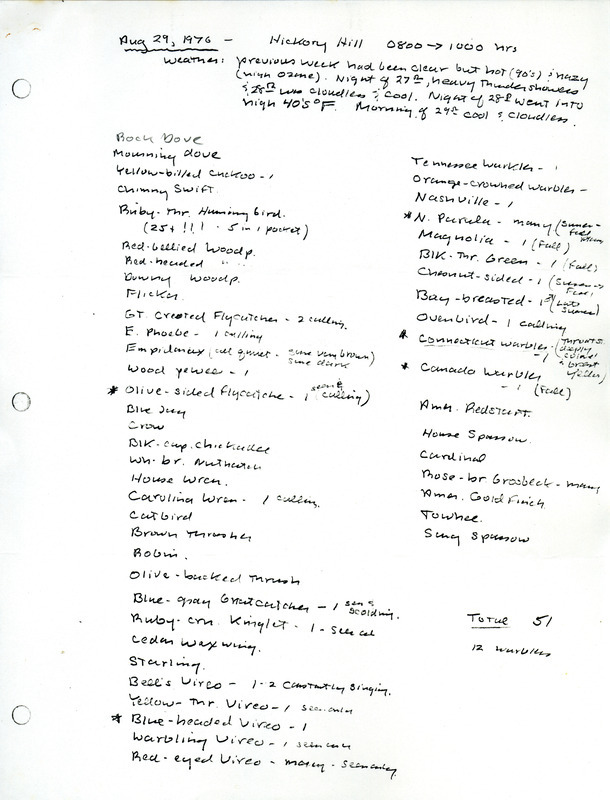 Aug 29, 1976 - Hickory Hill 0800 → 1000 hrs
Weather: previous week had been clear but hot (90's) & hazy
(high ozone). Night of 27th, heavy thundershowers
& 28th was cloudless & cool. Night of 28th went into
high 40's°F. Morning of 29th cool & cloudless.
Rock Dove
Mourning dove
Yellow-billed Cuckoo - 1
Chimny Swift
Ruby-Thr. Huming bird.
(25+ !!! - 5 in 1 pocket)
Red-bellied Woodp.
Red-headed " "
Downy Woodp.
Flicker
GT. Crested Flycatcher - 2 calling.
E. Phoebe - 1 calling
Empidonax
Wood pewee - 1
* Olive-sided Flycatcher - 1 (seen & calling)
Blue Jay
Crow
Blk-cap. chickadee
Wh-br. Nuthatch
House Wren.
Carolina Wren - 1 calling.
Catbird
Brown Thrasher
Robin.
Olive-backed Thrush
Blue-gray Gnatcatcher - 1 seen & scolding.
Ruby-crn. Kinglet - 1 - seen
Cedar Waxwing.
Starling.
Bell's Vireo - 1-2 constantly singing.
Yellow-Thr. Vireo - 1 seen only
* Blue-headed Vireo - 1
Warbling Vireo - 1 seen
Red-eyed Vireo - many - seen only
Tennessee Warbler - 1
Orange-crowned warbler -
Nashville - 1
* N. Parula - many
Magnolia - 1 (Fall)
Blk-Thr. Green - 1 (Fall)
Chesnut-sided - 1
Bay-breasted - 1
Ovenbird - 1 calling
* Connecticut warbler - 1
* Canada Warbler
- 1 (Fall)
Amer. Redstart.
House Sparrow.
Cardinal
Rose-br Grosbeck - many
Amer. Gold Finch
Towhee.
Song Sparrow
Total 51
12 warblers